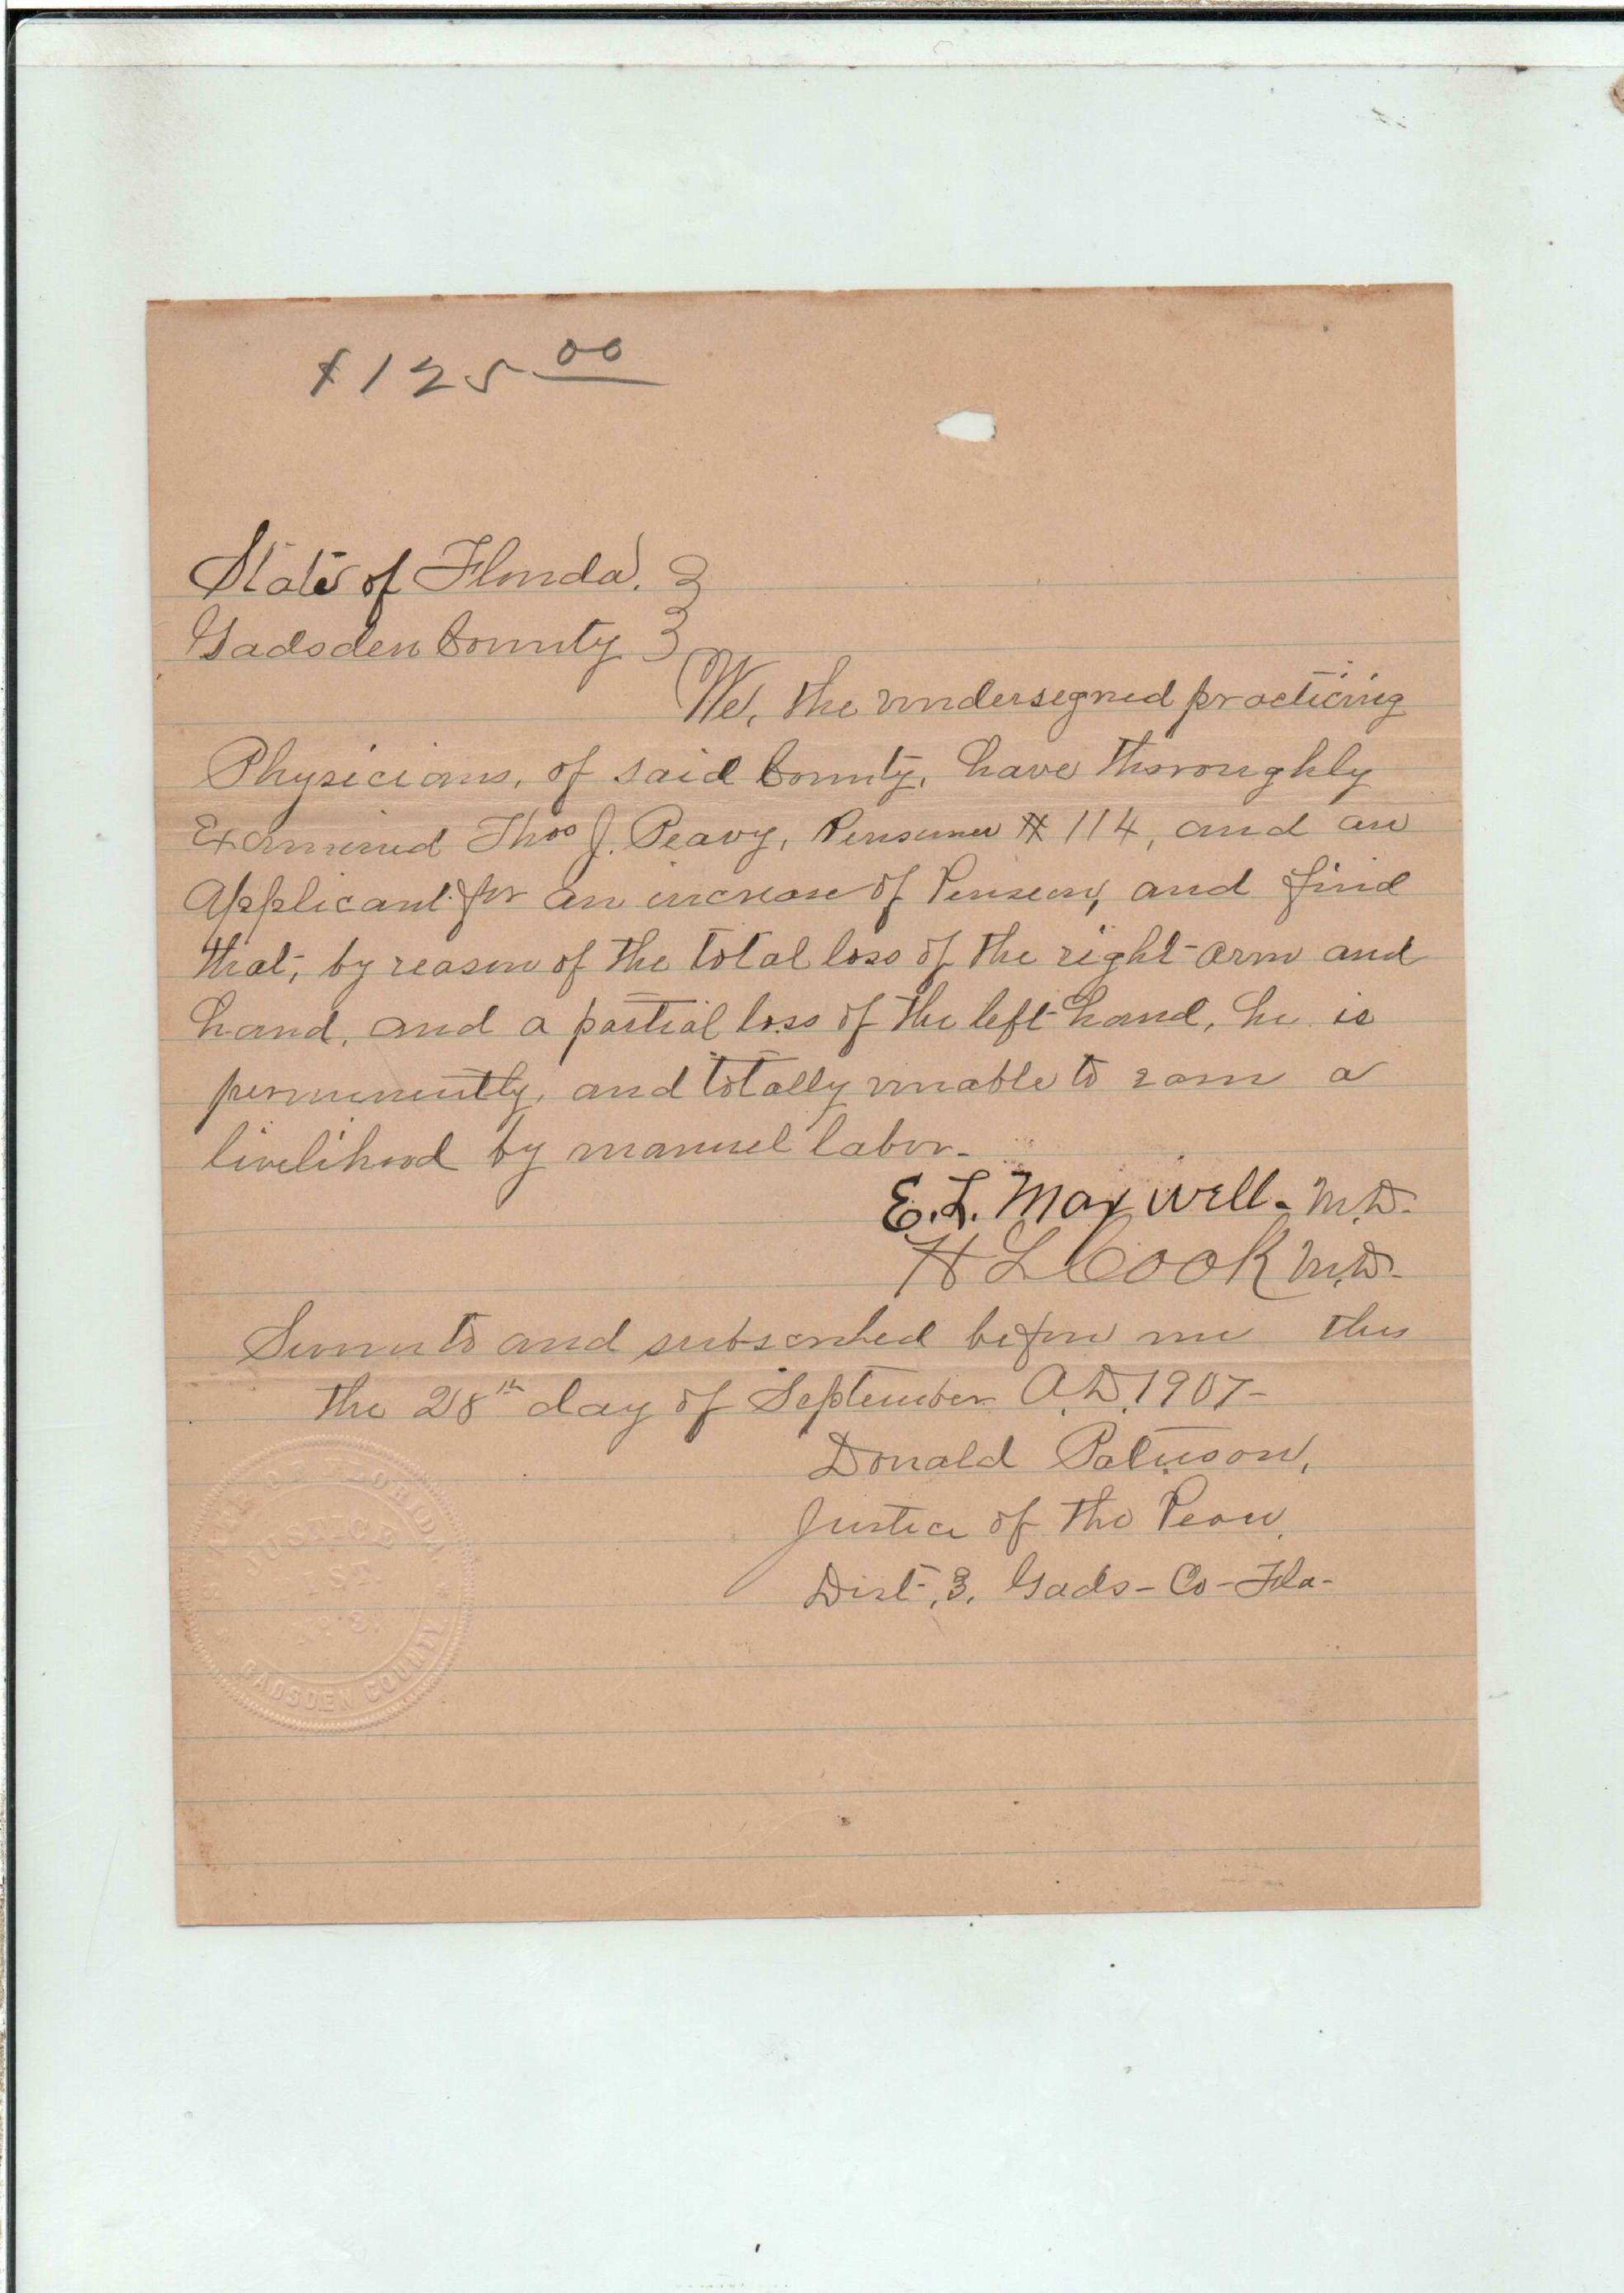 $125 00
State of Florida. }
Gadsden County }
We, the undersigned practicing
Physicians, of said County, have thoroughly
Examined Thos J. Peavy, Pensioner # 114, and an
Applicant for an increase of Pension, and find
that, by reason of the total loss of the right arm and
hand, and a partial loss of the left hand, he is
permanently, and totally unable to earn a
livelihood by manuel labor.
E. L. Maxwell. M.D.
H L Cook M.D.
Sworn to and subscribed before me this
the 28th day of September A.D. 1907-
Donald
Justice of the Peace.
Dist. 3. Gads- Co- Fla-
STATE OF FLORIDA
JUSTICE
DIST.
No. 3.
GADSDEN COUNTY